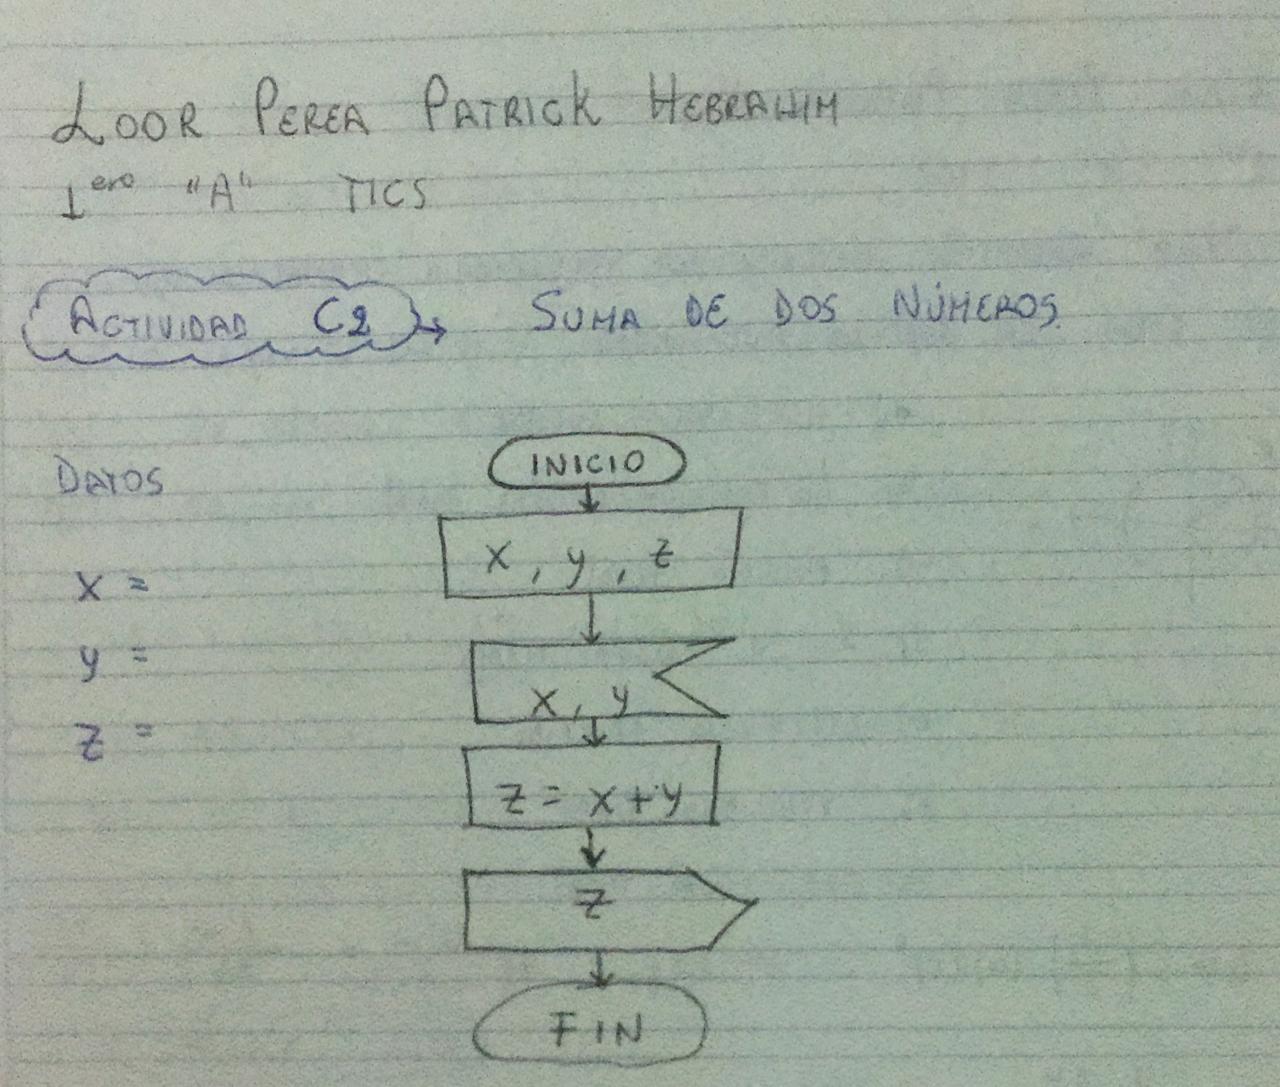 LOOR PEREA PATRICK HEBRAHIM
1ero "A" TICS
ACTIVIDAD C2 → SUMA DE DOS NÚMEROS.
DATOS
x =
y =
z =
INICIO
x , y , z
x, y
z = x+y
z
FIN